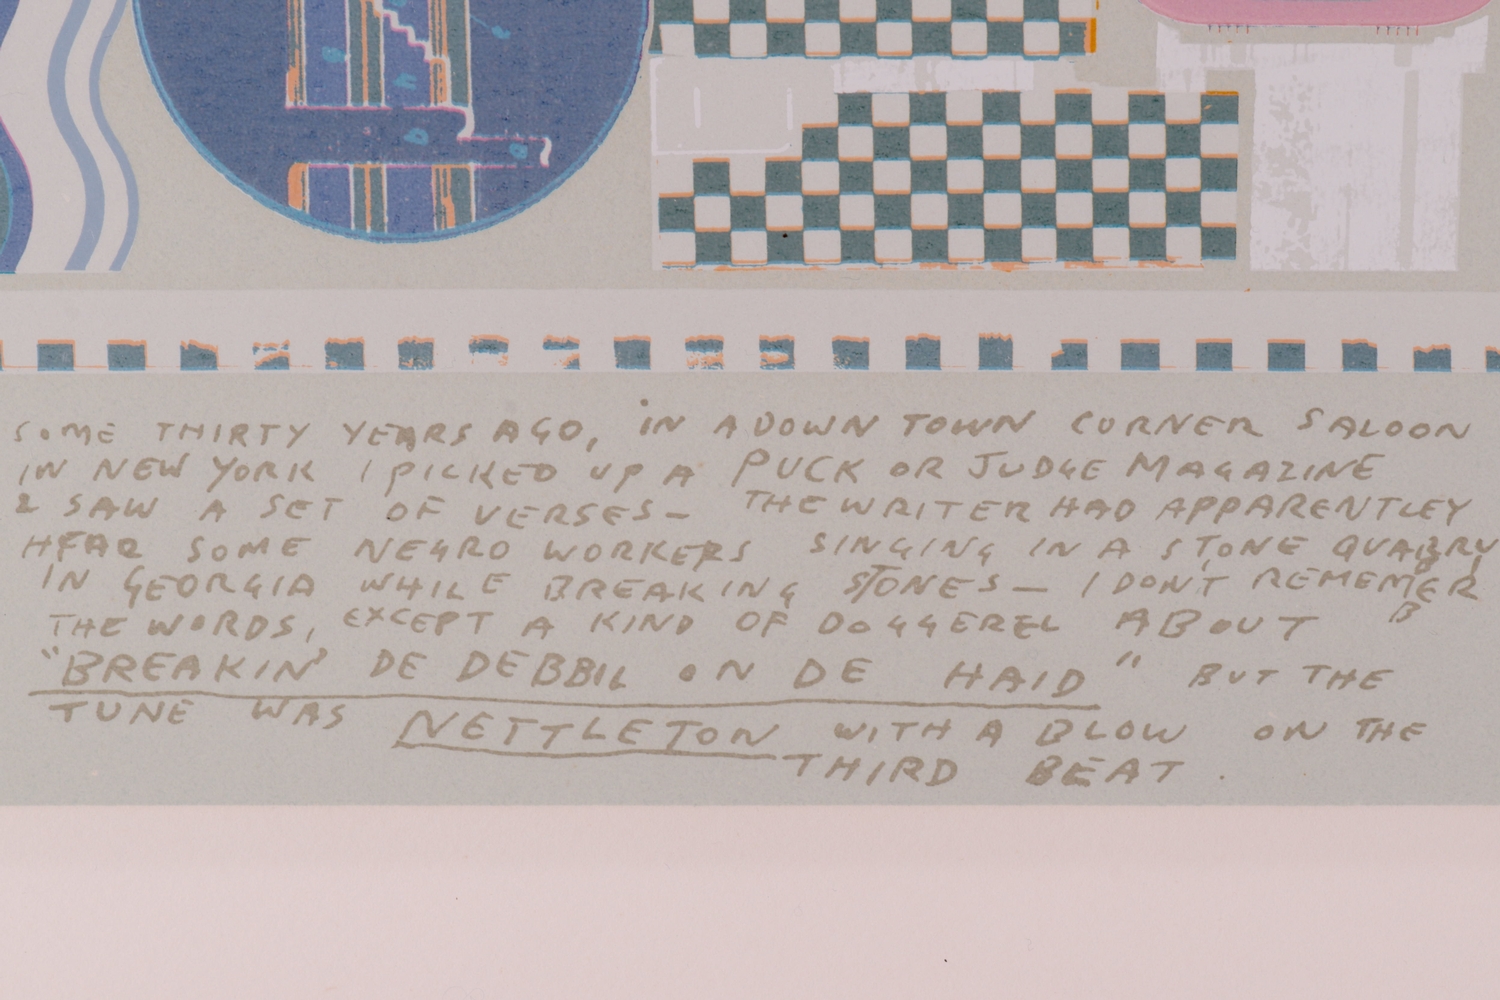 SOME THIRTY YEARS AGO, IN A DOWN TOWN CORNER SALOON
IN NEW YORK I PICKED UP A PUCK OR JUDGE MAGAZINE
& SAW A SET OF VERSES — THE WRITER HAD APPARENTLEY
HEAR SOME NEGRO WORKERS SINGING IN A STONE QUARRY
IN GEORGIA WHILE BREAKING STONES — I DON'T REMEMBER
THE WORDS, EXCEPT A KIND OF DOGGEREL ABOUT
"BREAKIN' DE DEBBIL ON DE HAID" BUT THE
TUNE WAS NETTLETON WITH A BLOW ON THE
THIRD BEAT.